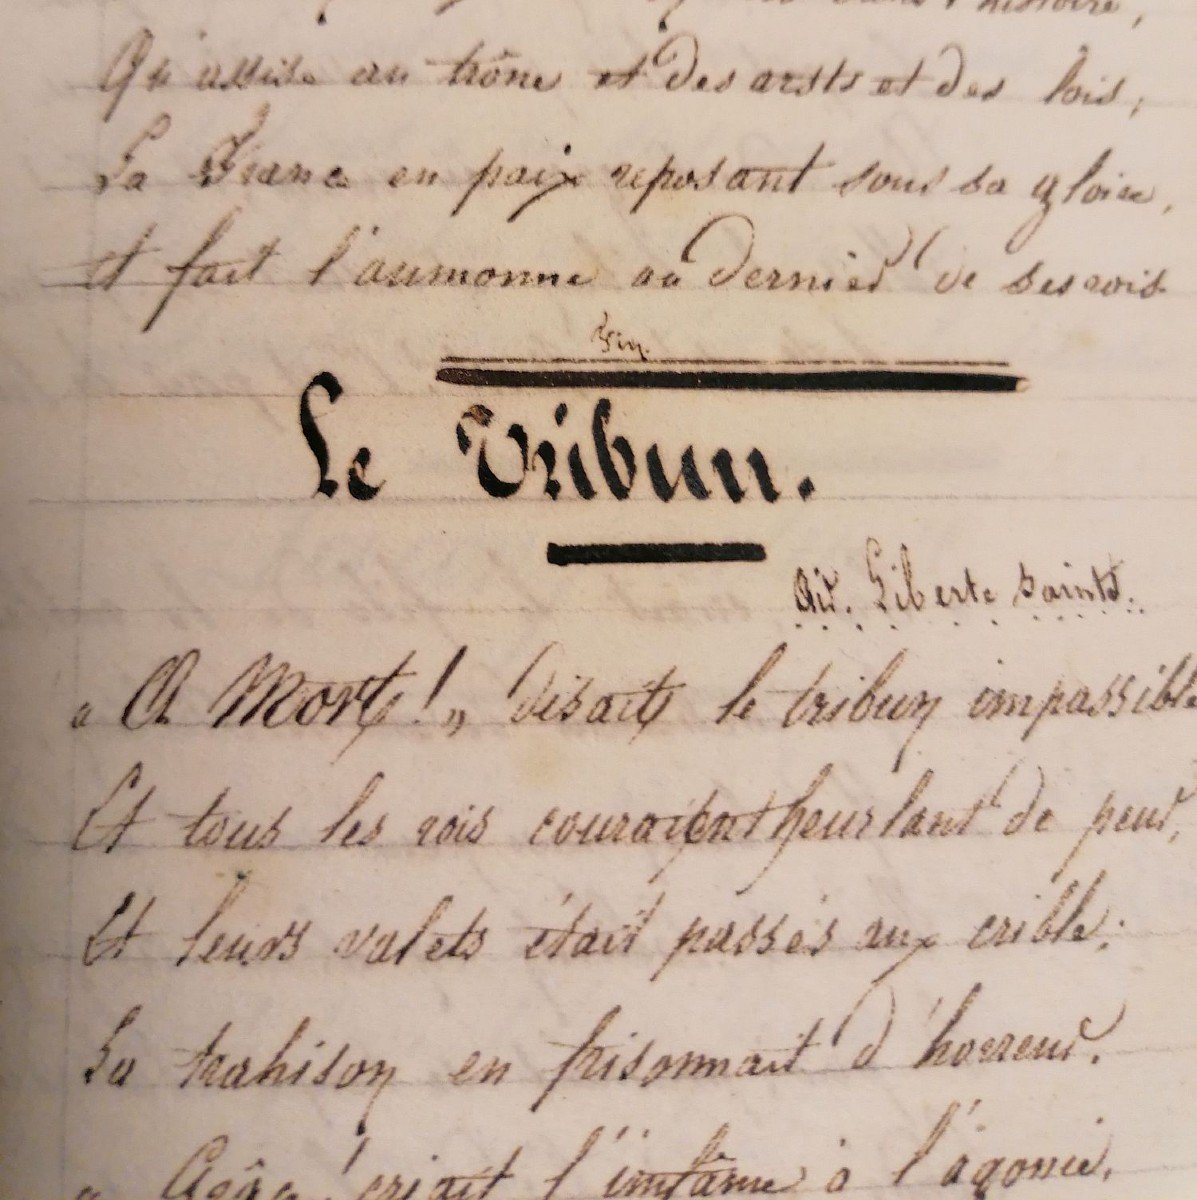 dans l'histoire,
Qu'assise au trône et des arsts et des lois,
La France en paix reposant sous sa gloire,
Et fait l'aumonne au dernier de ses rois
Fin
Le Tribun.
Air. Liberte Sainte.
« A Mort! „ disait le tribun impassible
Et tous les rois couraient heurlant de peur,
Et leurs valets était passés aux crible;
La trahison en frisonnait d'horreur.
« Grâce! criait l'infâme à l'agonie,